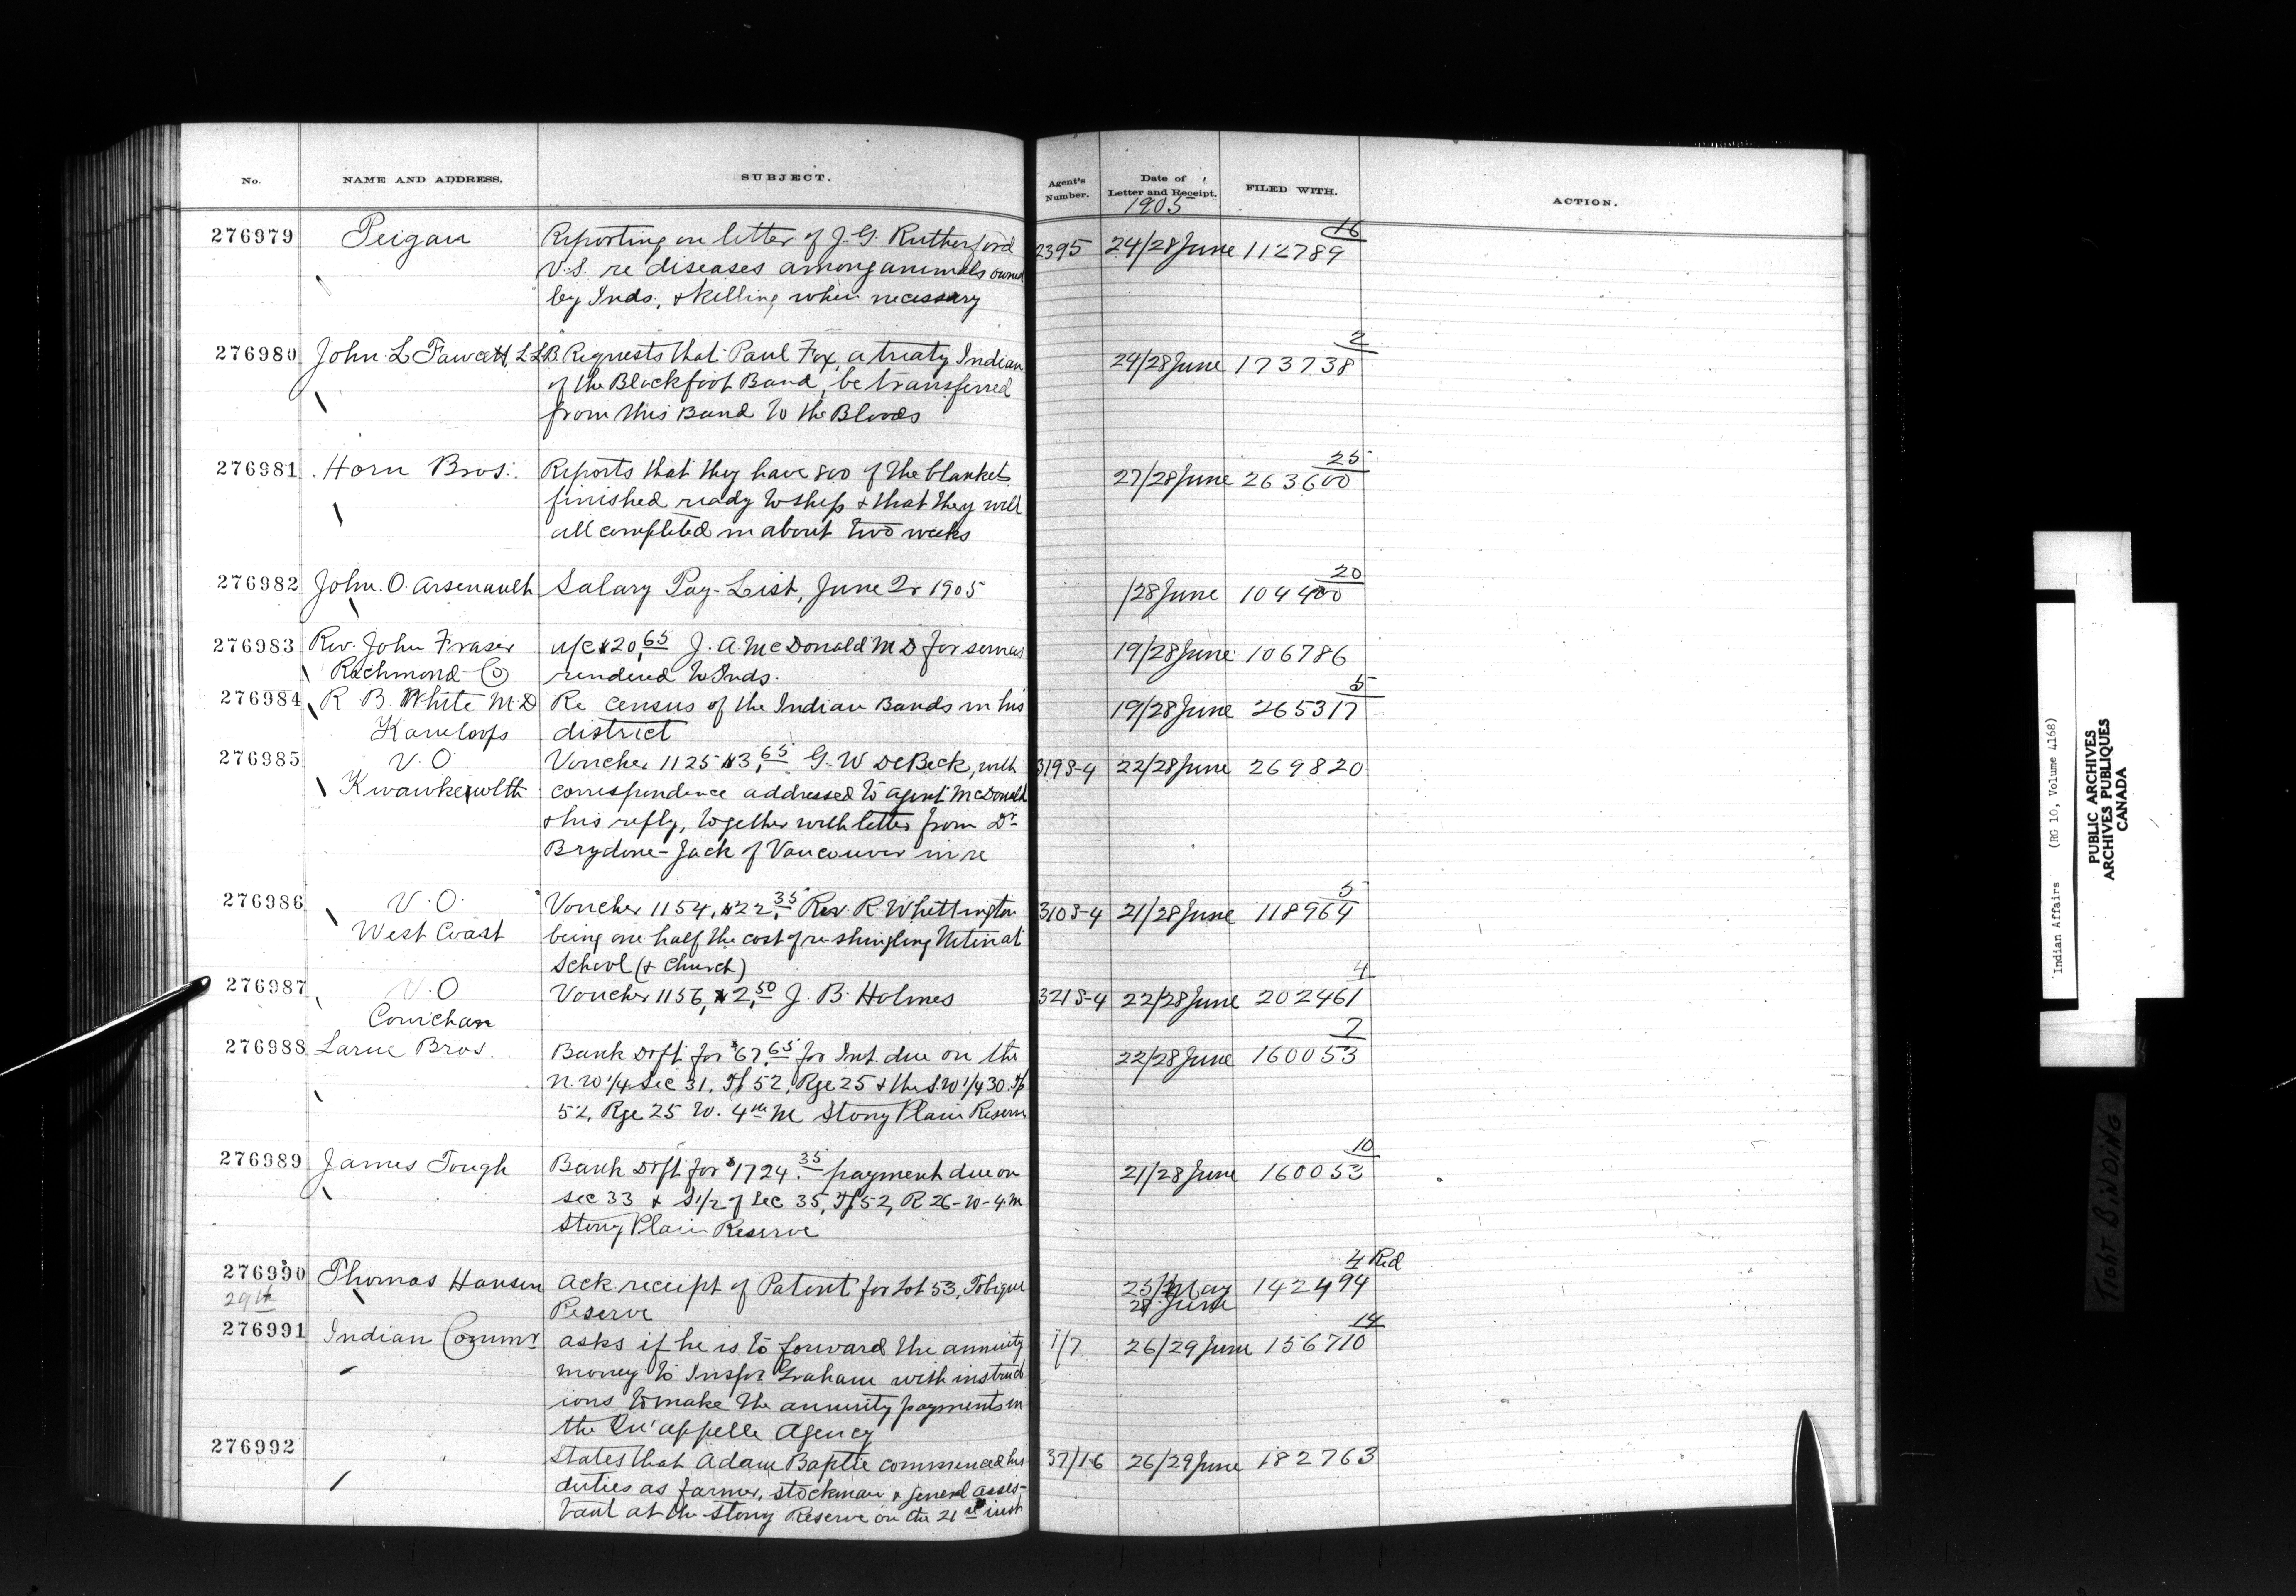 No. NAME AND ADDRESS. SUBJECT. Agent's Number. Date of Letter and Receipt. FILED WITH. ACTION.
1905
16
276979 Peigan Reporting on letter of J. G. Rutherford 2395 24/28 June 112789
V.S. re diseases among animals owned
by Inds. & killing when necessary
2
276980 John L Fawcett, L.L.B. Requests that Paul Fox, a treaty Indian 24/28 June 173738
of the Blackfoot Band, be transferred
from this Band to the Bloods
25
276981 Horn Bros. Reports that they have 800 of the blankets 27/28 June 263600
finished ready to ship & that they will
all completed in about two weeks
20
276982 John. O. Arsenault Salary Pay-List, June 2r 1905 /28 June 104400
276983 Rev. John Fraser a/c $20.65 J. A. McDonald M D for services 19/28 June 106786
Richmond Co rendered to Inds.
5
276984 R B White M.D Re census of the Indian Bands in his 19/28 June 265317
Kamloops district
276985 V.O Voucher 1125 $3.65 G. W DeBeck, with 319S-4 22/28 June 269820
Kwawkewlth correspondence addressed to agent McDonald
& his reply, together with letter from Dr
Brydone-Jack of Vancouver in re
5
276986 V.O. Voucher 1154, $22.35 Rev. R. Whittington 310S-4 21/28 June 118964
West Coast being one half the cost of re-shingling Nitinat
School (& Church)
4
276987 V.O Voucher 1156, $2.50 J. B. Holmes 321S-4 22/28 June 202461
Cowichan
7
276988 Larue Bros. Bank Drft. for $67.65 for Int. due on the 22/28 June 160053
N.W 1/4 Sec 31, Tp 52, Rge 25 & the S.W 1/4 30. Tp
52, Rge 25 W. 4th M Stony Plain Reserve
10
276989 James Tough Bank Drft. for $1724.35 payment due on 21/28 June 160053
sec 33 & S 1/2 of Sec 35, Tp 52, R 26-W-4 M
Stony Plain Reserve
4 Red
276990 Thomas Hansen Ack receipt of Patent for Lot 53, Tobique 25/May 142494
29th Reserve 28 June
14
276991 Indian Commr asks if he is to forward the annuity 1/7 26/29 June 156710
money to Inspr. Graham with instruct
ions to make the annuity payments in
the Qu'appelle Agency
276992 States that Adam Baptie commenced his 37/16 26/29 June 182763
duties as farmer, stockman & general assis-
tant at the Stony Reserve on the 21st inst
Indian Affairs (RG 10, Volume 4168)
PUBLIC ARCHIVES
ARCHIVES PUBLIQUES
CANADA
TIGHT BINDING